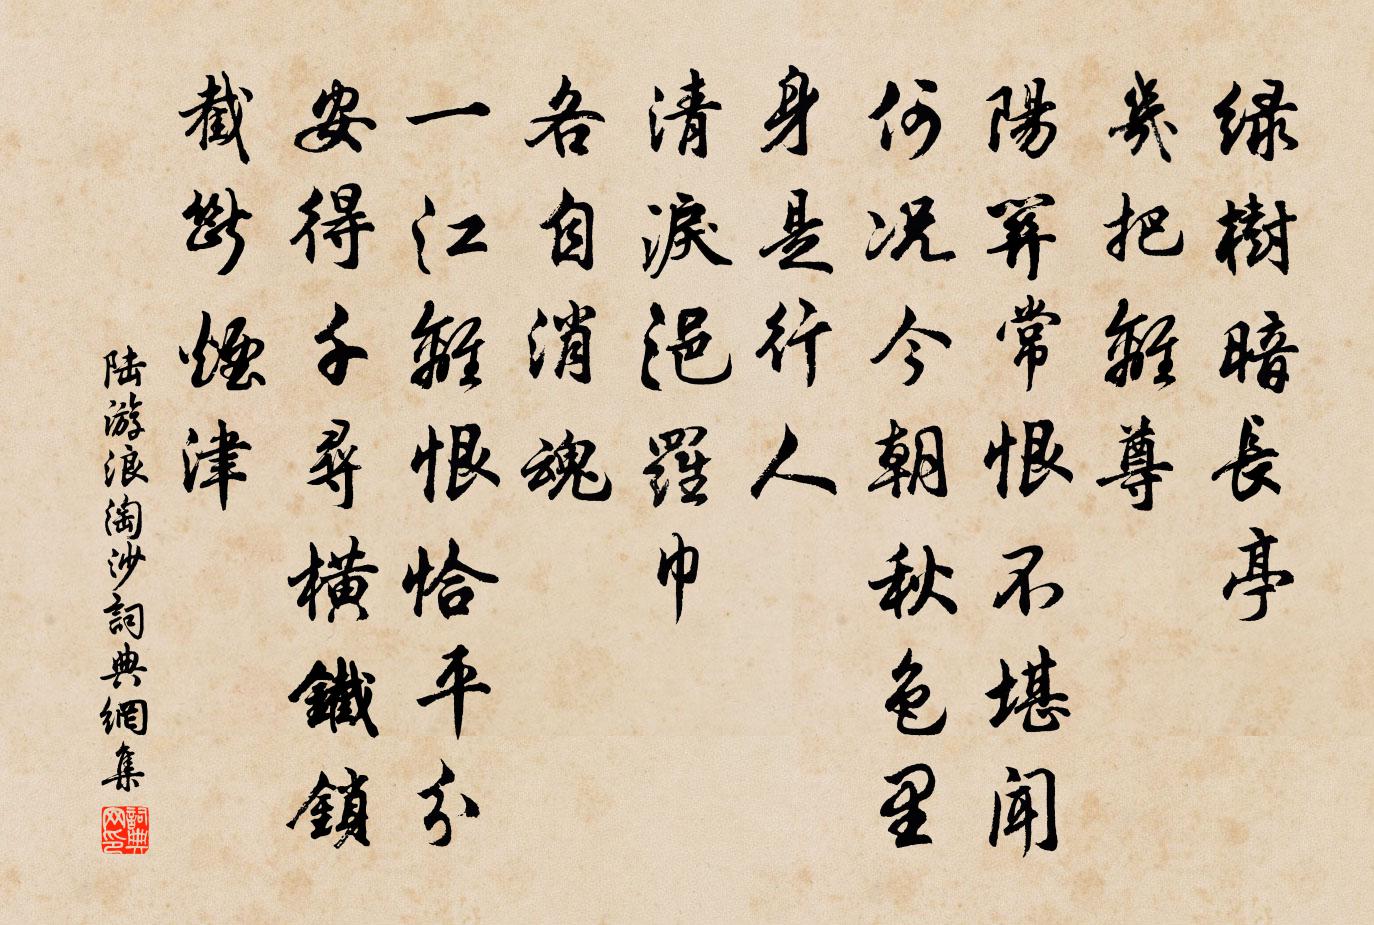 綠樹暗長亭
幾把離尊
陽關常恨不堪聞
何況今朝秋色里
身是行人
清淚浥羅巾
各自消魂
一江離恨恰平分
安得千尋橫鐵鎖
截斷煙津
陆游浪淘沙詞典網集
詞典网印